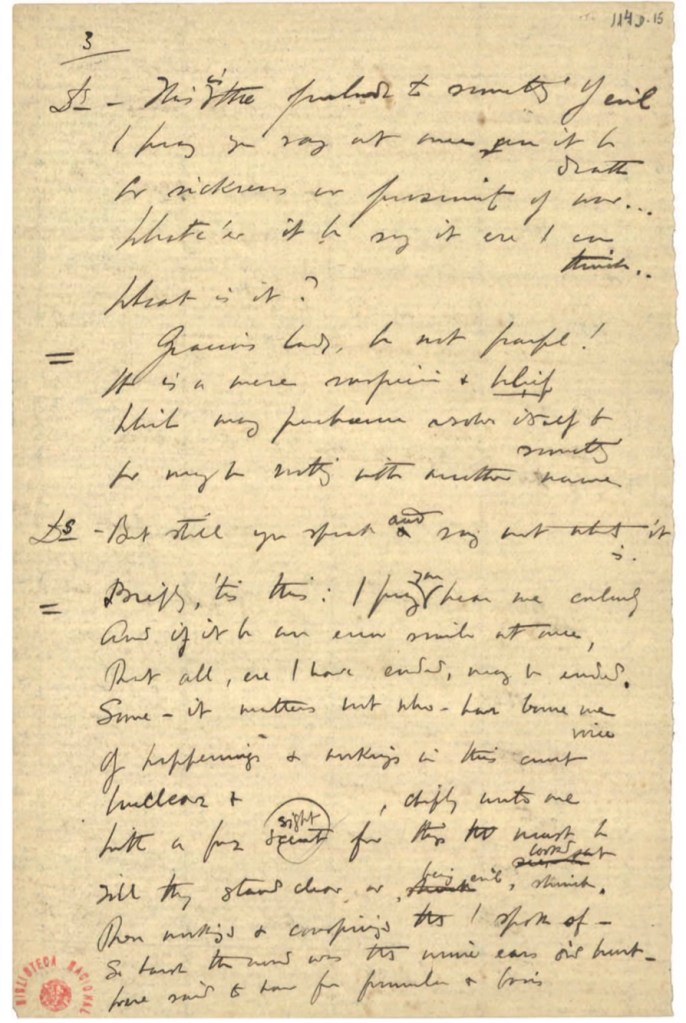 114D-15
3
Ds - This is the prelude to something of evil
I pray you say at once, gem it be
death
Or sickness or proximity of war...
Whate'er it be say it ere I can
think..
What is it?
= Gracious lady, be not fearful!
It is a mere suspicion & belief
Which may perchance resolve itself to
something
Or maybe nothing with another name
Ds - But still you speak and say not what it
is.
= Briefly, 'tis this: I pray you hear me calmly
And if it be an error smile at once,
That all, ere I have ended, may be ended.
Some - it matters not who - has borne me
voice
Of happenings & workings in this court
Unclear & , chiefly unto me
With a for sight for things that must be
looked at
Till they stand clear or being evil, shrink.
These workings & conspirings that I spoke of -
So harsh the word was that mine ears did hurt -
have said to have for &
BIBLIOTECA NACIONAL